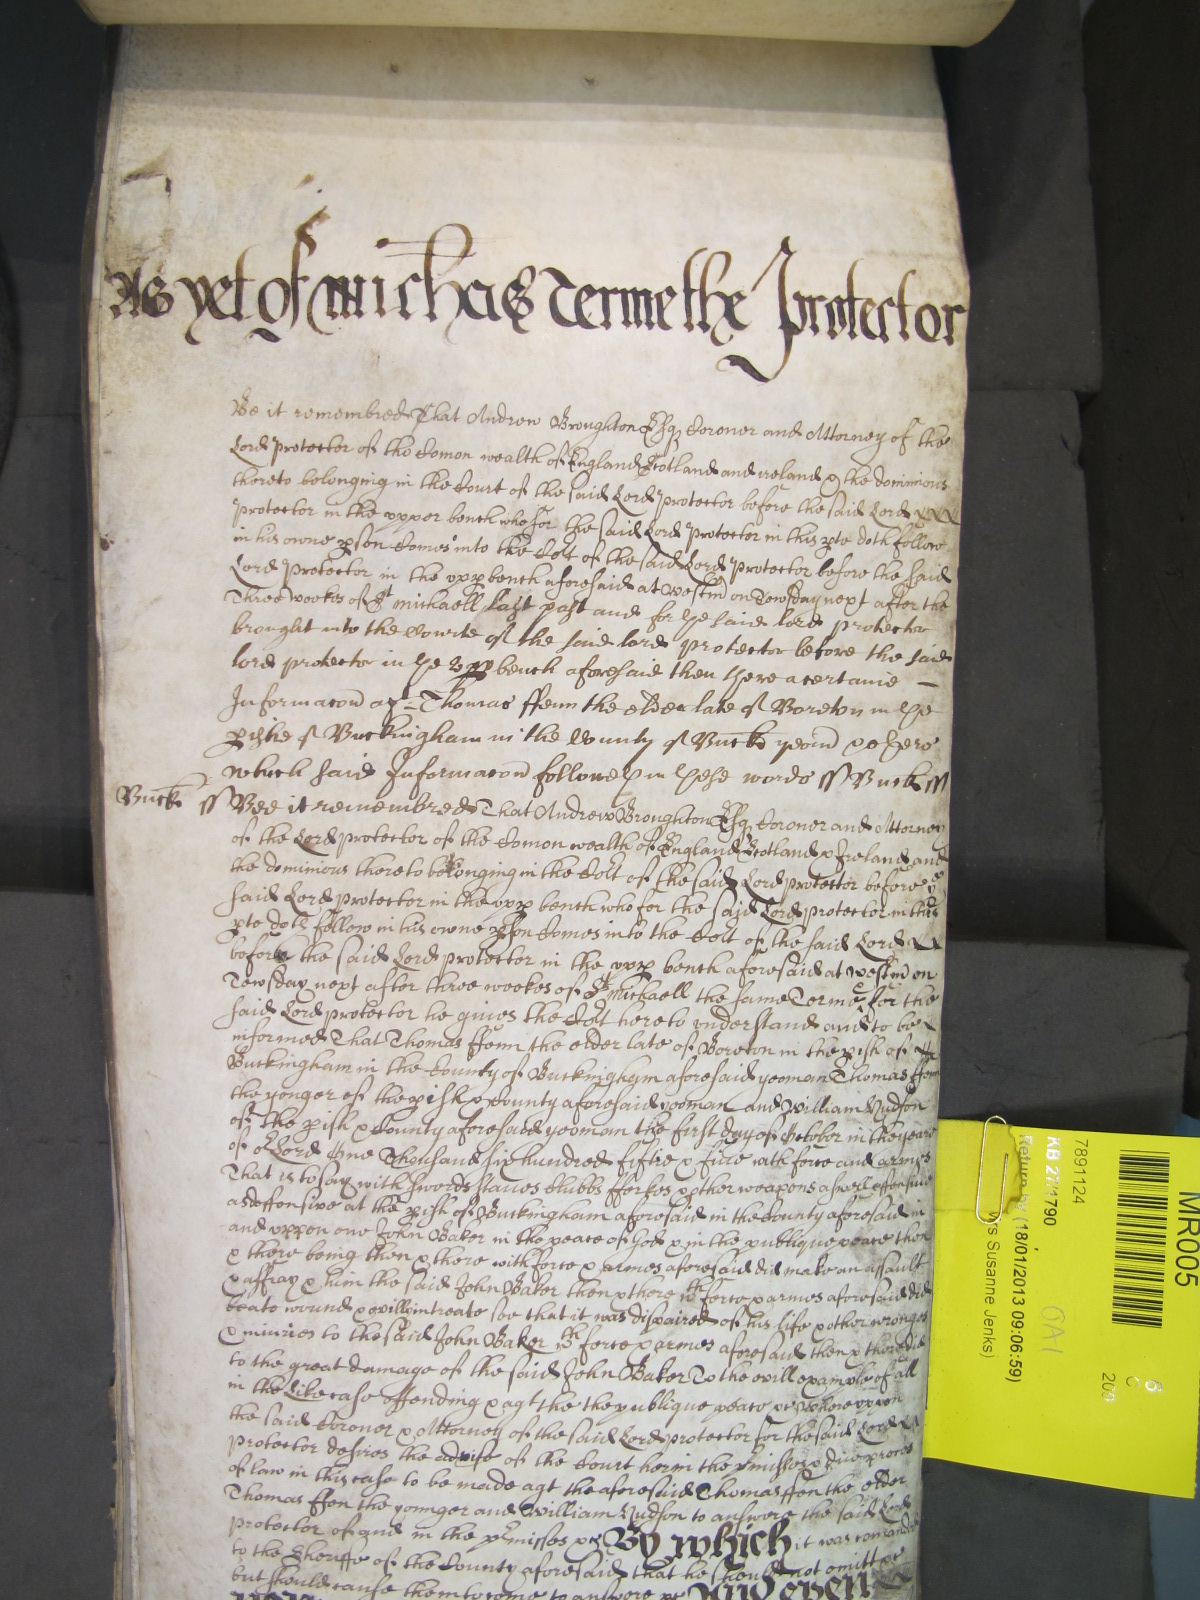 As yet of Michas Terme the Protector
Be it remembred That Andrew Broughton Esq Coroner and Attorney of the
Lord Protector of the Comon wealth of England Scotland and ireland & the dominions
thereto belonging in the Court of the said Lord Protector before the said Lord
Protector in the upper bench who for the said Lord Protector in this pte doth follow
in his owne pson Comes into the Cort of the said Lord Protector before the said
Lord Protector in the upp bench aforesaid at Westm on Tewsday next after the
Three weekes of St michaell last past and for the said lord protector
brought into the Courte of the said lord protector before the said
lord protector in the upp bench aforesaid then there a certaine
Informacon agt Thomas ffenn the elder late of Boreton in the
pishe of Buckingham in the County of Buck yeom & others
which said Informacon followeth in these words ss Buck ss
Buck ss Bee it remembred That Andrew Broughton Esq Coroner and Attorney
of the Lord Protector of the Comon wealth of England Scotland & Ireland and
the dominions thereto belonging in the Cort of the said Lord protector before the
said Lord protector in the upp bench who for the said Lord protector in this
pte doth follow in his owne pson Comes into the Cort of the said Lord
before the said Lord protector in the upp bench aforesaid at westm on
Tewsday next after three weekes of St michaell the same Terme & for the
said Lord protector he gives the Cort here to understand and to be
informed That Thomas ffenn the elder late of Boreton in the pish of
Buckingham in the County of Buckingham aforesaid yeoman Thomas ffenn
the yonger of the pish & County aforesaid yeoman and William Hudson
of the pish & County aforesaid yeoman the first day of October in the yeare
of or Lord One Thousand six hundred fiftie & five with force and armes
That is to say with swords staves Clubbs fforkes & other weapons aswell offensive
as deffensive at the pish of Buckingham aforesaid in the County aforesaid in
and uppon one John Baker in the peace of God & in the publique peace then
& there being then & there with force & armes aforesaid did make an assault
& affray & him the said John Baker then & there wth force & armes aforesaid did
beate wound & evilly intreate soe that it was dispaired of his life & other wronges
& iniuries to the said John Baker wth force & armes aforesaid then & there did
to the great damage of the said John Baker To the evill example of all
in the Like case offending & agt the the publique peace &c Whereuppon
the said Coroner & Attorney of the said Lord protector for the said Lord
Protector desires the advise of the Court herin the pmisses & due proces
of law in this case to be made agt the aforesaid Thomas ffen the elder
Thomas ffen the younger and William Hudson to answere the said Lord
Protector of and in the pmisses &c By which it was comanded
to the Sheriffe of the County aforesaid that he should not omitt &c
but should cause them to come to answere &c And even
MR005
6
C
209
7891124
KB 27/1790
Return by (18/01/2013 09:06:59)
Susanne Jenks)
OA1